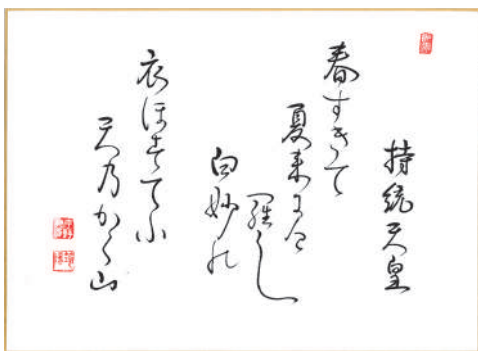 持統天皇
春すきて
夏来にけ
羅し
白妙の
衣ほすてふ
天乃かく山